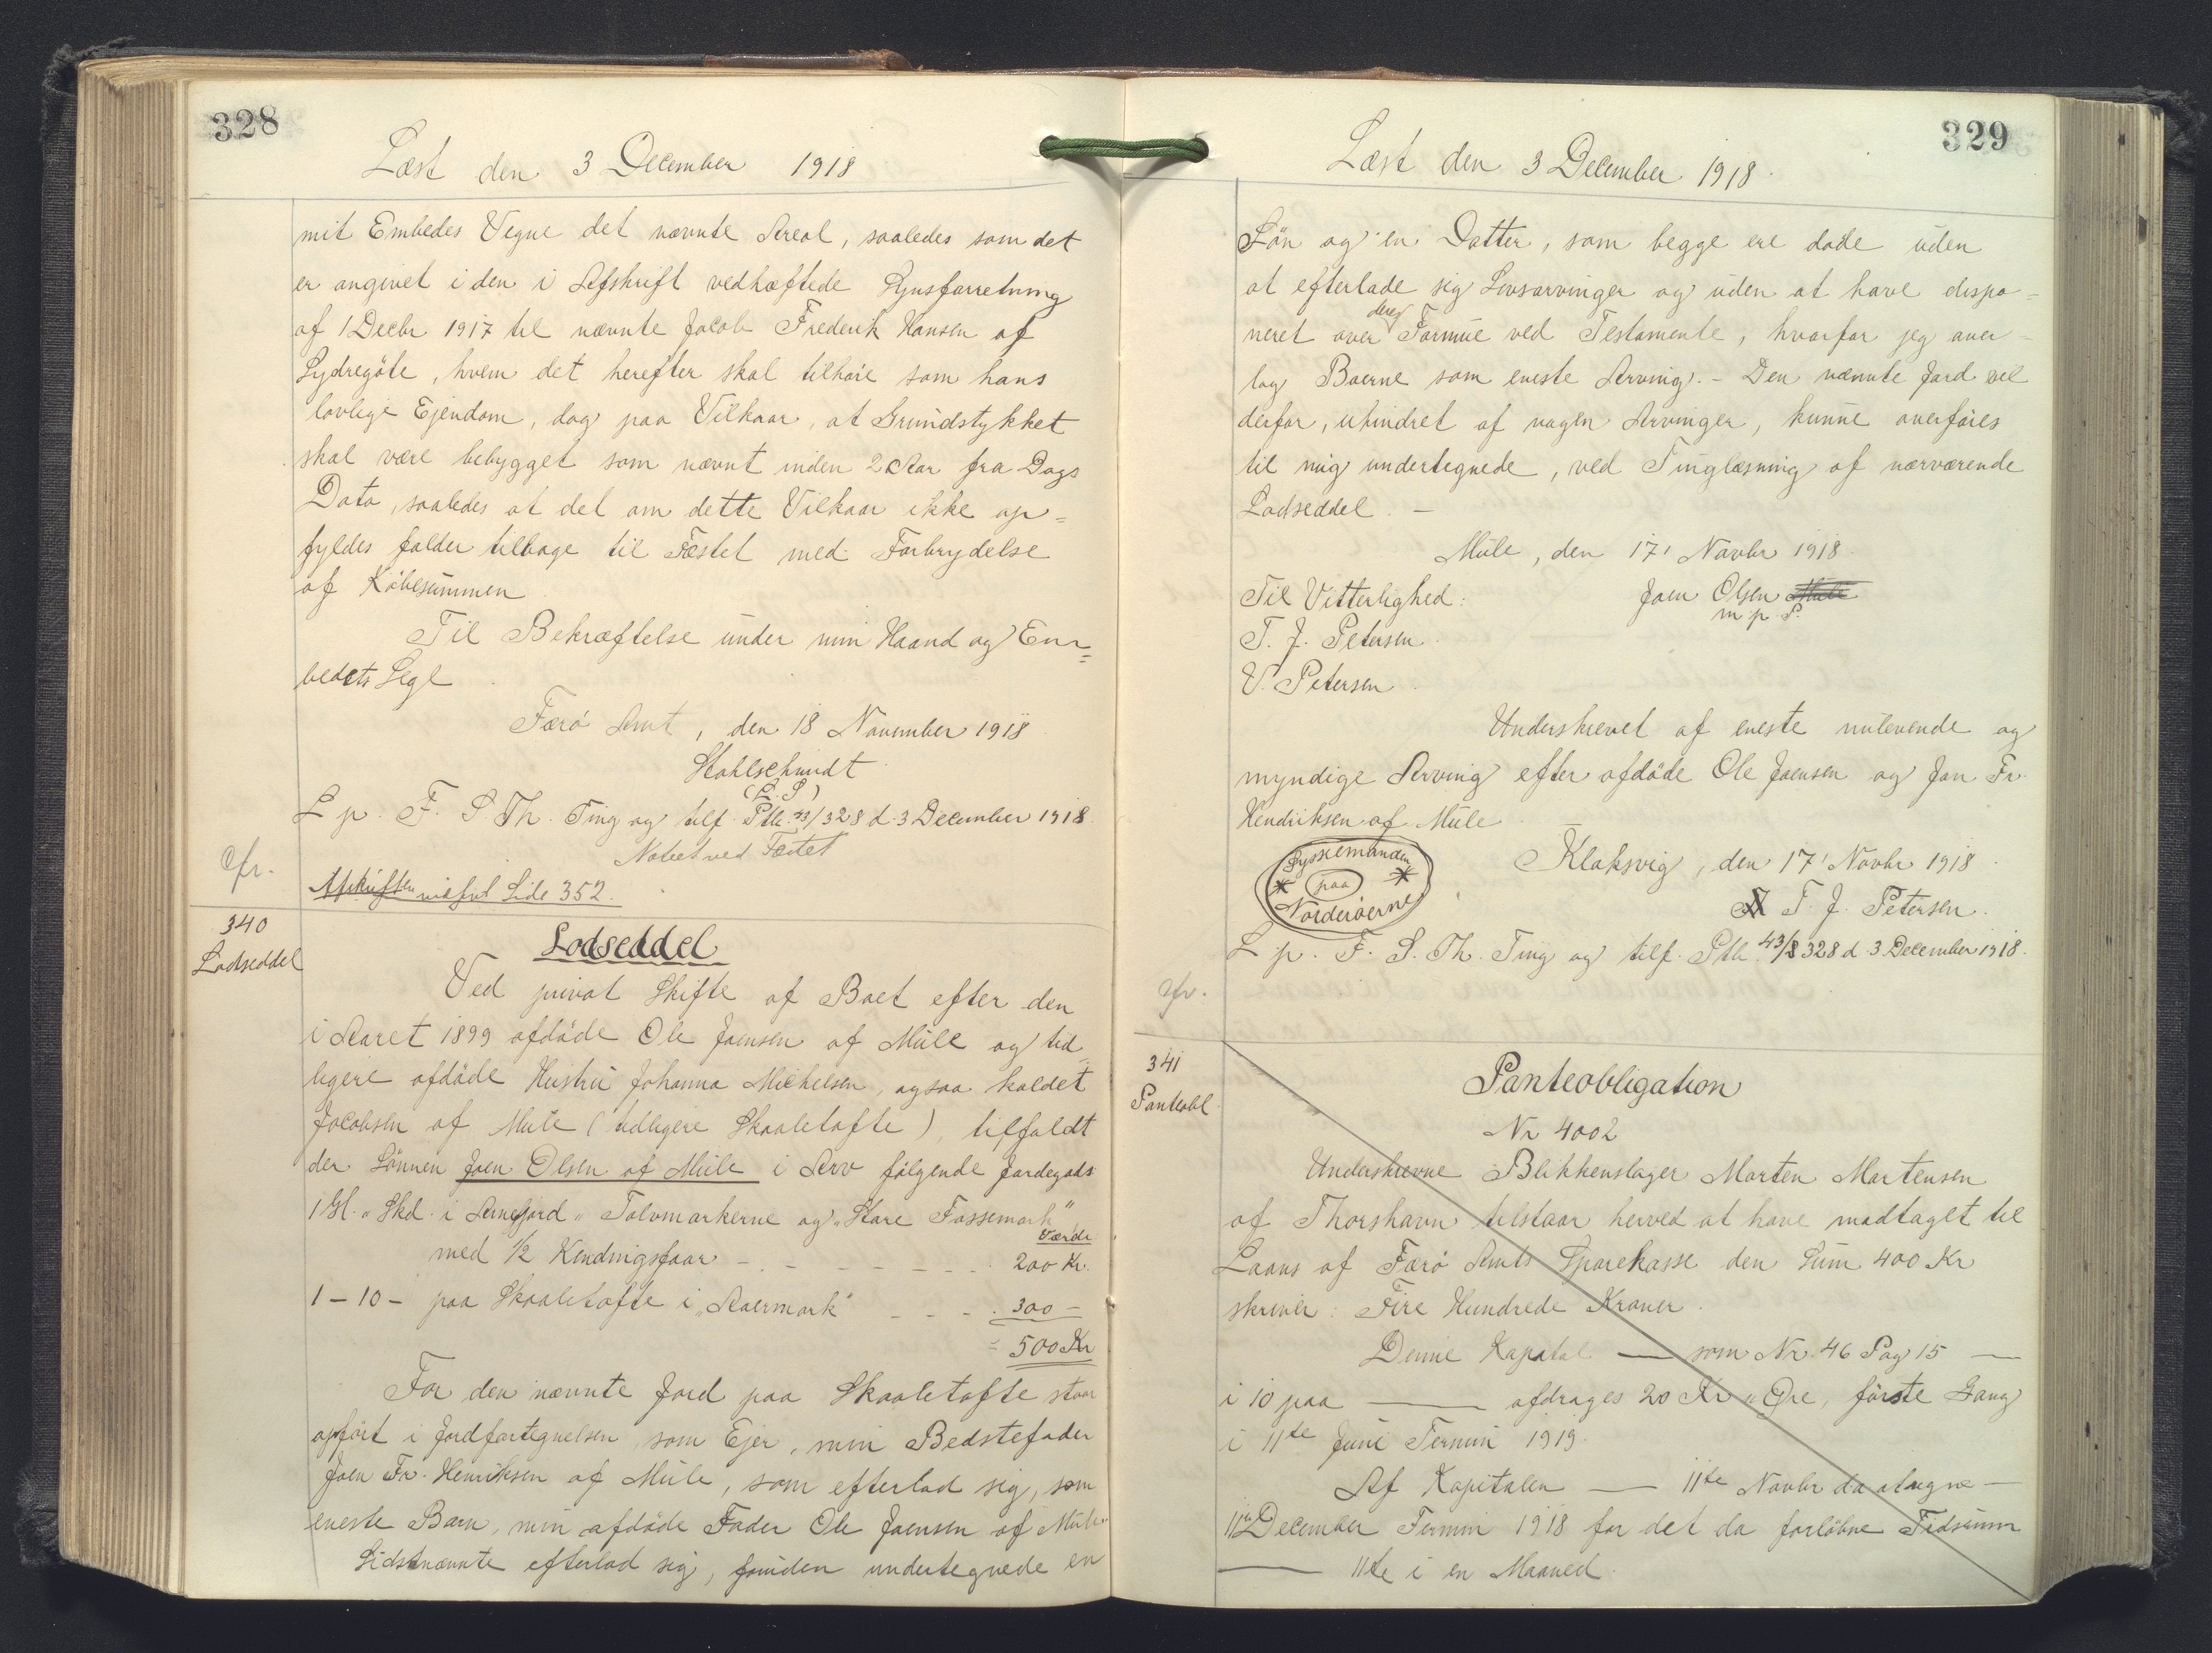 328
Læst den 3 December 1918
mit Embedes Vegne det nævnte Areal, saaledes som det
er angivet i den i Afskrift vedhæftede Synsforretning
af 1 Decbr 1917 til nævnte Jacob Frederik Hansen af
Sydregöte, hvem det herefter skal tilhøre som hans
lovlige Ejendom, dog paa Vilkaar, at Grundstykket
skal være bebygget som nævnt inden 2 Aar fra Dags
Dato, saaledes at det om dette Vilkaar ikke op=
fyldes falder tilbage til Fæstet med Forbrydelse
af Köbesummen
Til Bekræftelse under min Haand og Em=
bedets Segl
Færö Amt, den 18 November 1918
Stahlschmidt
(L. S)
L p. F. S Th. Ting og tilf. Ptb. 43/328 d. 3 December 1918.
Noteret ved Fæstet
cfr.
Afskriften indført Side 352.
340
Lodseddel
Lodseddel
Ved privat Skifte af Boet efter den
i Aaret 1899 afdöde Ole Joensen af Mule og tid=
ligere afdöde Hustru Johanna Michelsen, ogsaa kaldet
Jacobsen af Mule (tidligere Skaaletofte), tilfaldt
der Sönnen Joen Olsen af Mule i Arv fölgende Jordegods
1 Gl. " Skd. i Arnefjord " Tolvmarkerne og "Store Fossemark"
Værdi
med 1/2 Kendingsfaar - - - - - - - 200 Kr.
1 - 10 - paa Skaaletofte i "Aaermark" - - - 300 -
= 500 Kr
For den nævnte Jord paa Skaaletofte staar
opfört i Jordfortegnelsen, som Ejer, min Bedstefader
Joen Fr. Henriksen af Mule, som efterlod sig, som
eneste Barn, min afdöde Fader Ole Joensen af Mule.
Sidstnævnte efterlod sig, foruden undertegnede en
329
Læst den 3 December 1918.
Sön og en Datter, som begge ere döde uden
at efterlade sig Livsarvinger og uden at have dispo=
neret over deres Formue ved Testamente, hvorfor jeg over=
tog Boerne som eneste Arving. - Den nævnte Jord vil
derfor, uhindret af nogen Arvinger, kunne overföres
til mig undertegnede, ved Tinglæsning af nærværende
Lodseddel. -
Mule, den 17' Novbr 1918.
Til Vitterlighed: Joen Olsen Mule
m. p. S.
T. J. Petersen
V. Petersen.
Underskrevet af eneste nulevende og
myndige Arving efter afdöde Ole Joensen og Jon Fr.
Hendriksen af Mule.
Sysselmanden
* paa *
Norderöerne
Klaksvig, den 17' Novbr 1918
T. J. Petersen.
L p. F. S. Th. Ting og tilf. Ptb. 43/328 d 3 December 1918.
cfr.
341
Panteobl.
Panteobligation
Nr 4002
Underskrevne Blikkenslager Morten Mortensen
af Thorshavn tilstaar herved at have modtaget til
Laans af Færö Amts Sparekasse den Sum 400 Kr
skriver: Fire Hundrede Kroner.
Denne Kapital — som Nr. 46 Pag 15 —
i 10 paa — afdrages 20 Kr " Öre, förste Gang
i 11te Juni Termin 1919.
Af Kapitalen — 11te Novbr da ategne —
11te December Termin 1918 for det da forlöbne Tidsrum
— 11te i en Maaned.